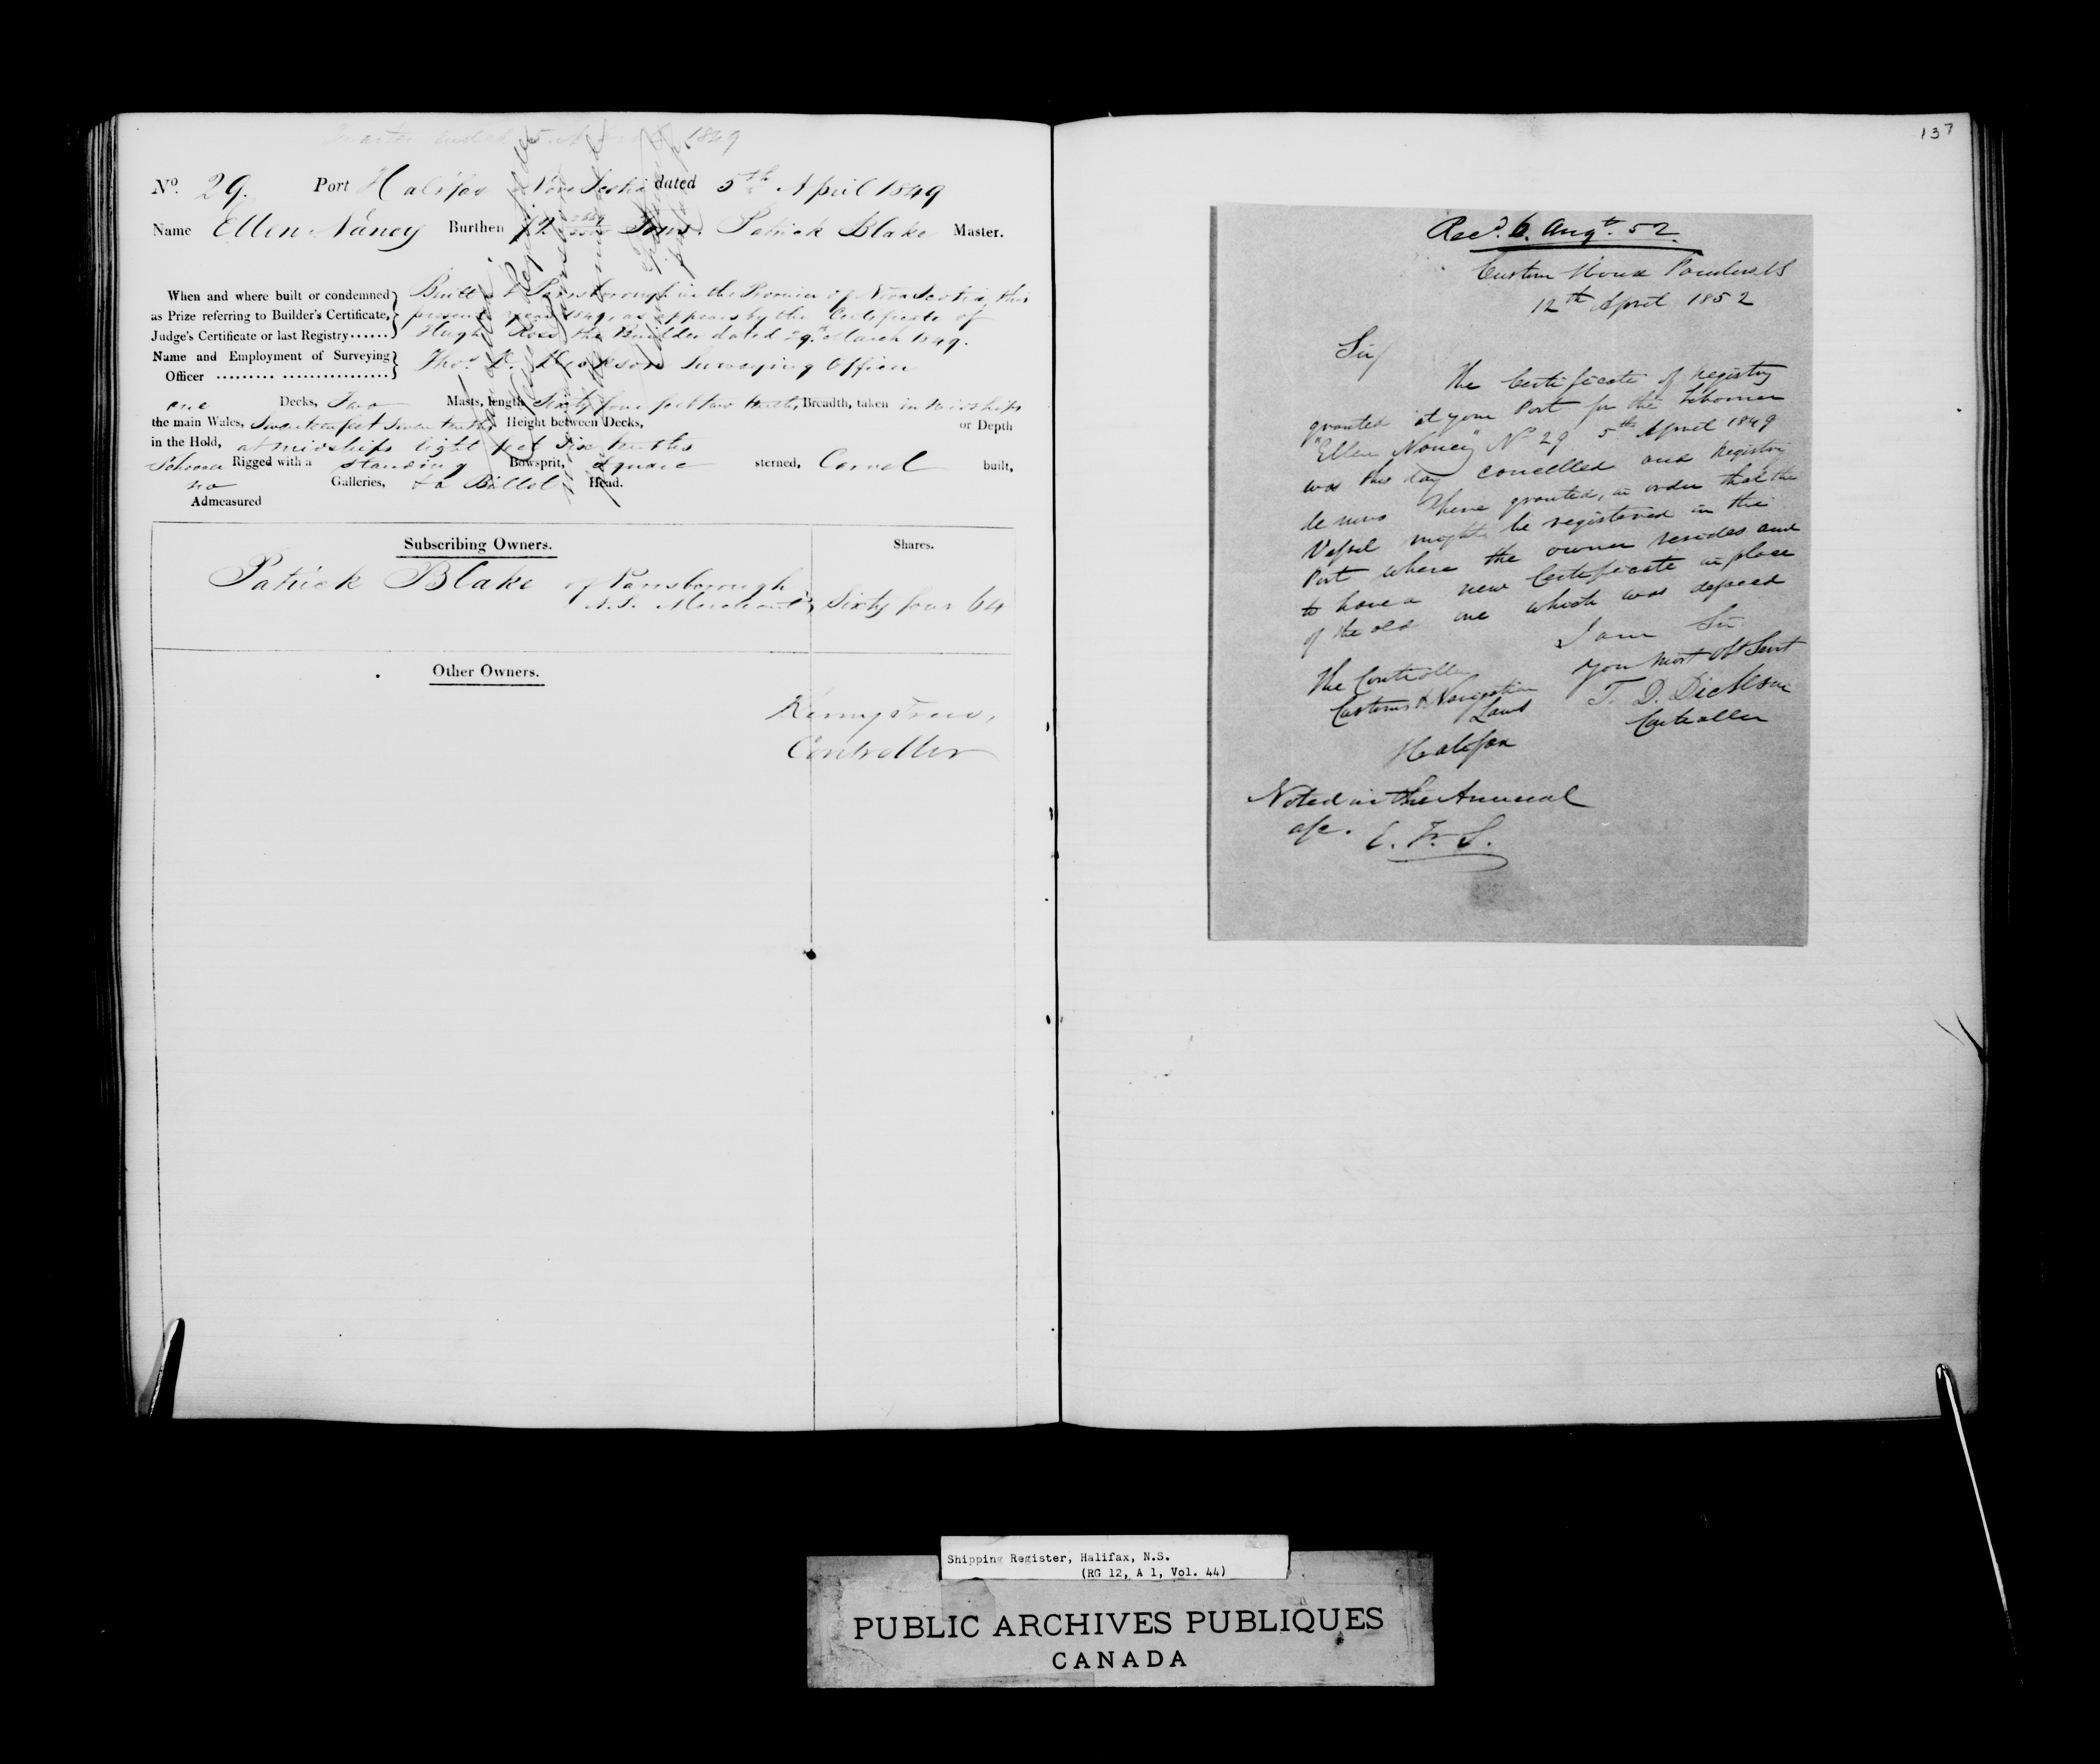 1849
No. 29. Port Halifax Nova Scotia dated 5th April 1849
Name Ellen Nancy Burthen Tons. Patrick Blake Master.
When and where built or condemned Built at Parrsborough in the Province of Nova Scotia, this
as Prize referring to Builder's Certificate, present year 1849, as appears by the Certificate of
Judge's Certificate or last Registry...... Hugh Ross the Builder dated 29th March 1849.
Name and Employment of Surveying
Officer ......... ................ Thos. D. Dickson Surveying Officer
one Decks, Two Masts, length Sixty four feet two tenths, Breadth, taken in midships
the main Wales, Seventeen feet Seven tenths Height between Decks, or Depth
in the Hold, at midships Eight feet Six tenths
Schooner Rigged with a standing Bowsprit, Square sterned, Carvel built,
no Galleries, & a Billet Head.
Admeasured
Subscribing Owners. Shares.
Patrick Blake of Parrsborough
N.S. Merchant Sixty four 64
Other Owners.
Controller
137
Recd. 6. Augt. 52.
Custom House
12th April 1852
Sir/
The Certificate of Registry
granted at your Port for the Schooner
"Ellen Nancy" No 29 5th April 1849
was this day cancelled and Registry
de novo here granted, in order that the
Vessel might be registered in the
Port where the owner resides and
to have a new Certificate in place
of the old one which was defaced
I am Sir
Your Most Obt Servt
T. D. Dickson
Controller
The Controller
Customs & Navigation
Laws
Halifax
Noted in the Annual
a/c. C. F. S.
Shipping Register, Halifax, N.S.
(RG 12, A 1, Vol. 44)
PUBLIC ARCHIVES PUBLIQUES
CANADA